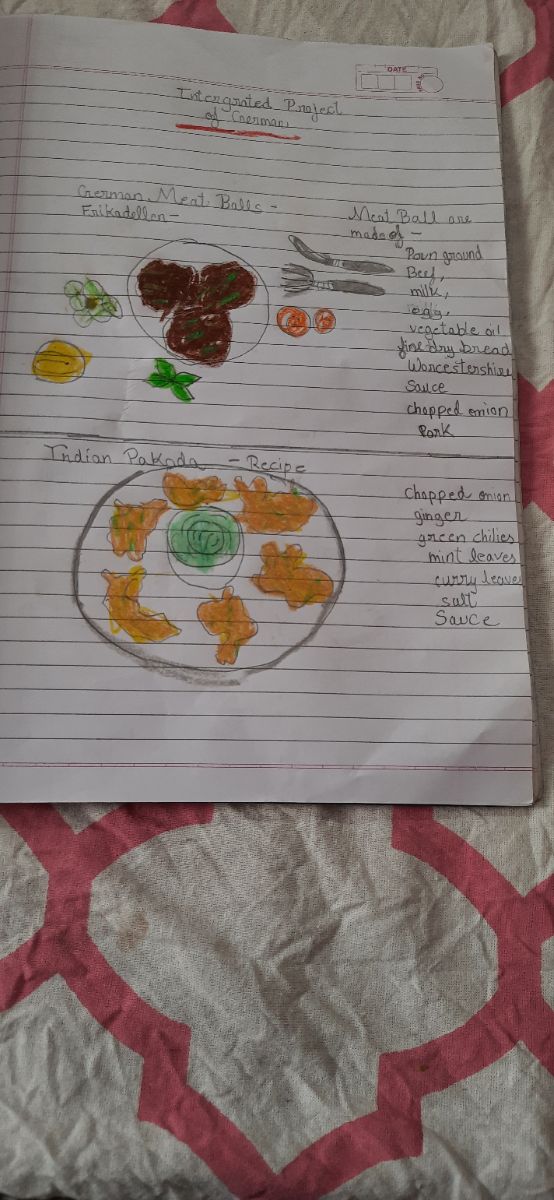 DATE
Intergrated Project
of German
German Meat Balls -
Frikadellen -
Meat Ball are
made of -
ground
Beef,
milk,
egg,
vegetable oil
fine dry bread
Worcestershire
Sauce
chopped onion
Pork
Indian Pakoda - Recipe
chopped onion
ginger
green chilies
mint leaves
curry leaves
salt
Sauce